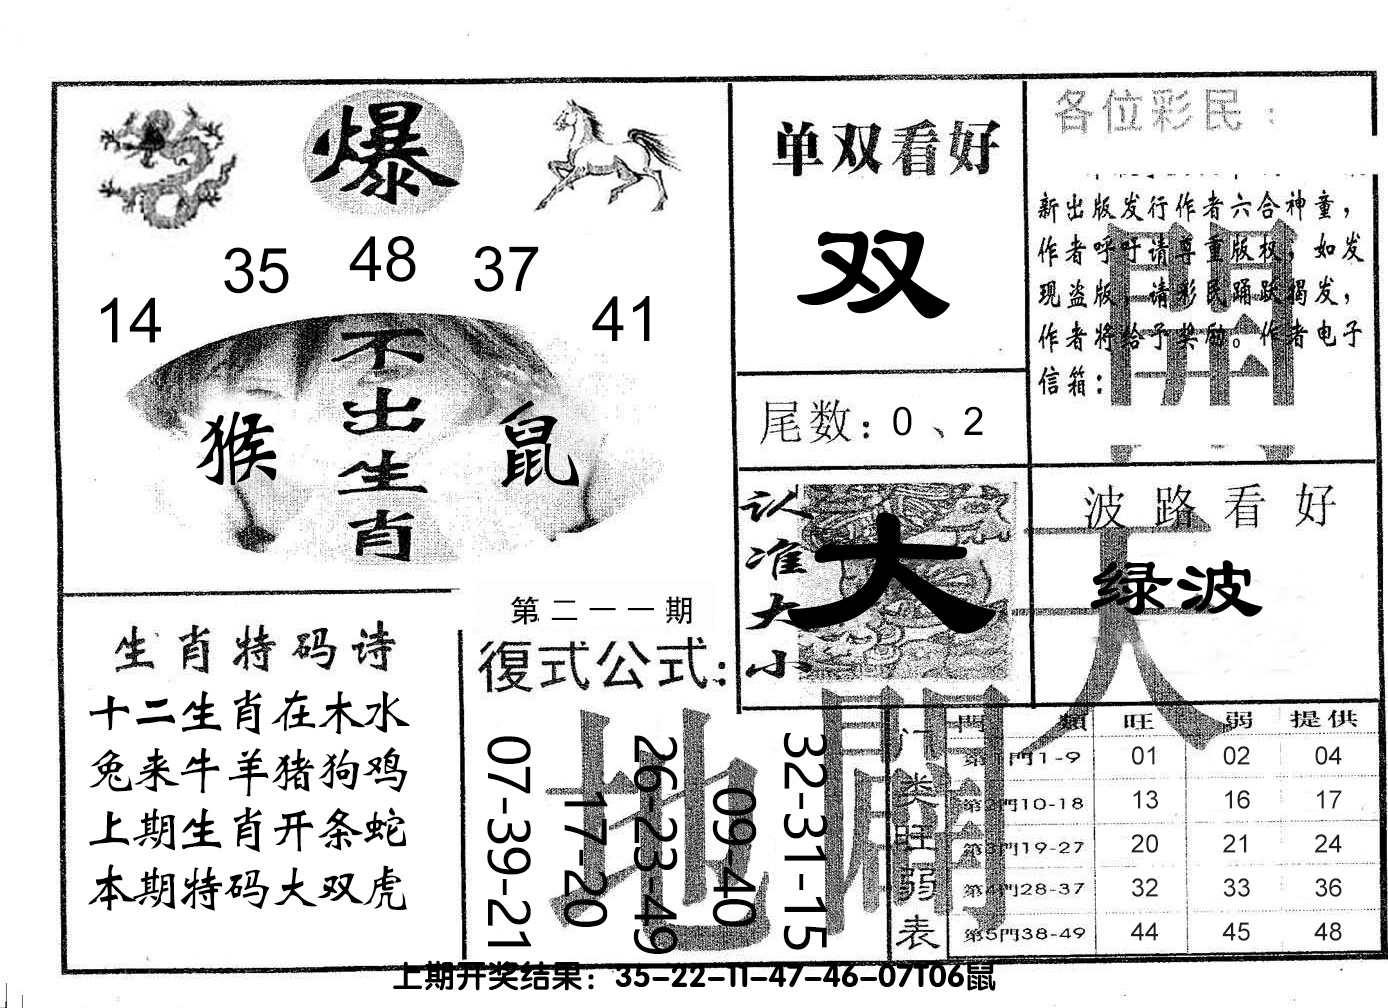 爆
35 48 37
14 41
不出生肖
猴 鼠
单双看好
双
尾数：0、2
各位彩民：
新出版发行作者六合神童，
作者呼吁请尊重版权，如发
现盗版，请彩民踊跃揭发，
作者将给予奖励。作者电子
信箱：
認准大小
大
波路看好
绿波
生肖特码诗
十二生肖在木水
兔来牛羊猪狗鸡
上期生肖开条蛇
本期特码大双虎
第二一一期
復式公式：
07-39-21
17-20
26-23-49
09-40
32-31-15
天
地
門类旺弱表
門 類 旺 弱 提供
第1門1-9 01 02 04
第2門10-18 13 16 17
第3門19-27 20 21 24
第4門28-37 32 33 36
第5門38-49 44 45 48
上期开奖结果：35-22-11-47-46-07T06鼠